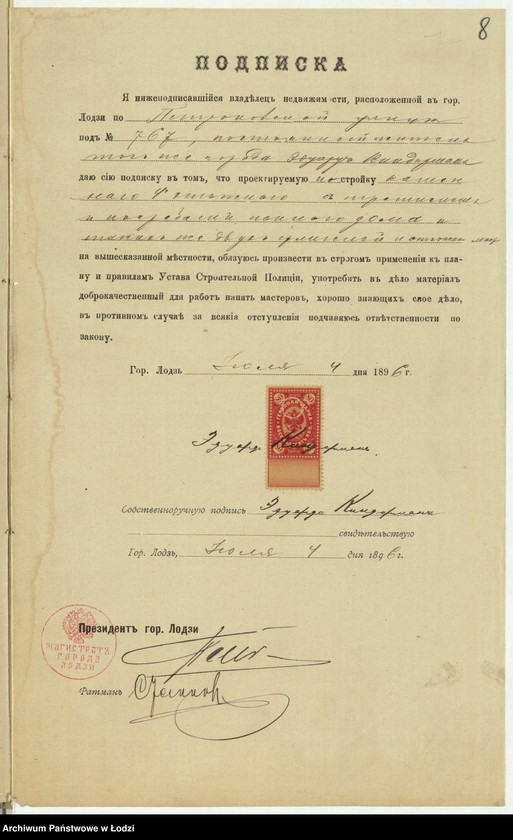 8
ПОДПИСКА
Я нижеподписавшійся владѣлецъ недвижимости, расположенной въ гор.
Лодзи по Петроковской улицѣ
подъ № 767, постоянный житель
того же города Эдуардъ Киндерманъ
даю сію подписку въ томъ, что проектируемую постройку камен
наго 4 этажного с
и погребами жилого дома и
также же двухъ флигелей
на вышесказанной мѣстности, обязуюсь произвести въ строгомъ примѣненіи къ пла-
ну и правиламъ Устава Строительной Полиціи, употребить въ дѣло матеріалъ
доброкачественный для работ нанять мастеровъ, хорошо знающихъ свое дѣло,
въ противномъ случаѣ за всякія отступленія подчиняюсь отвѣтственности по
закону.
Гор. Лодзь Іюля 4 дня 1896 г.
Эдуардъ Киндерманъ.
Собственноручную подпись Эдуарда Киндермана
свидѣтельствую
Гор. Лодзь, Іюля 4 дня 1896 г.
Президентъ гор. Лодзи
МАГИСТРАТЪ
ГОРОДА
ЛОДЗИ
Ратманъ
Archiwum Państwowe w Łodzi